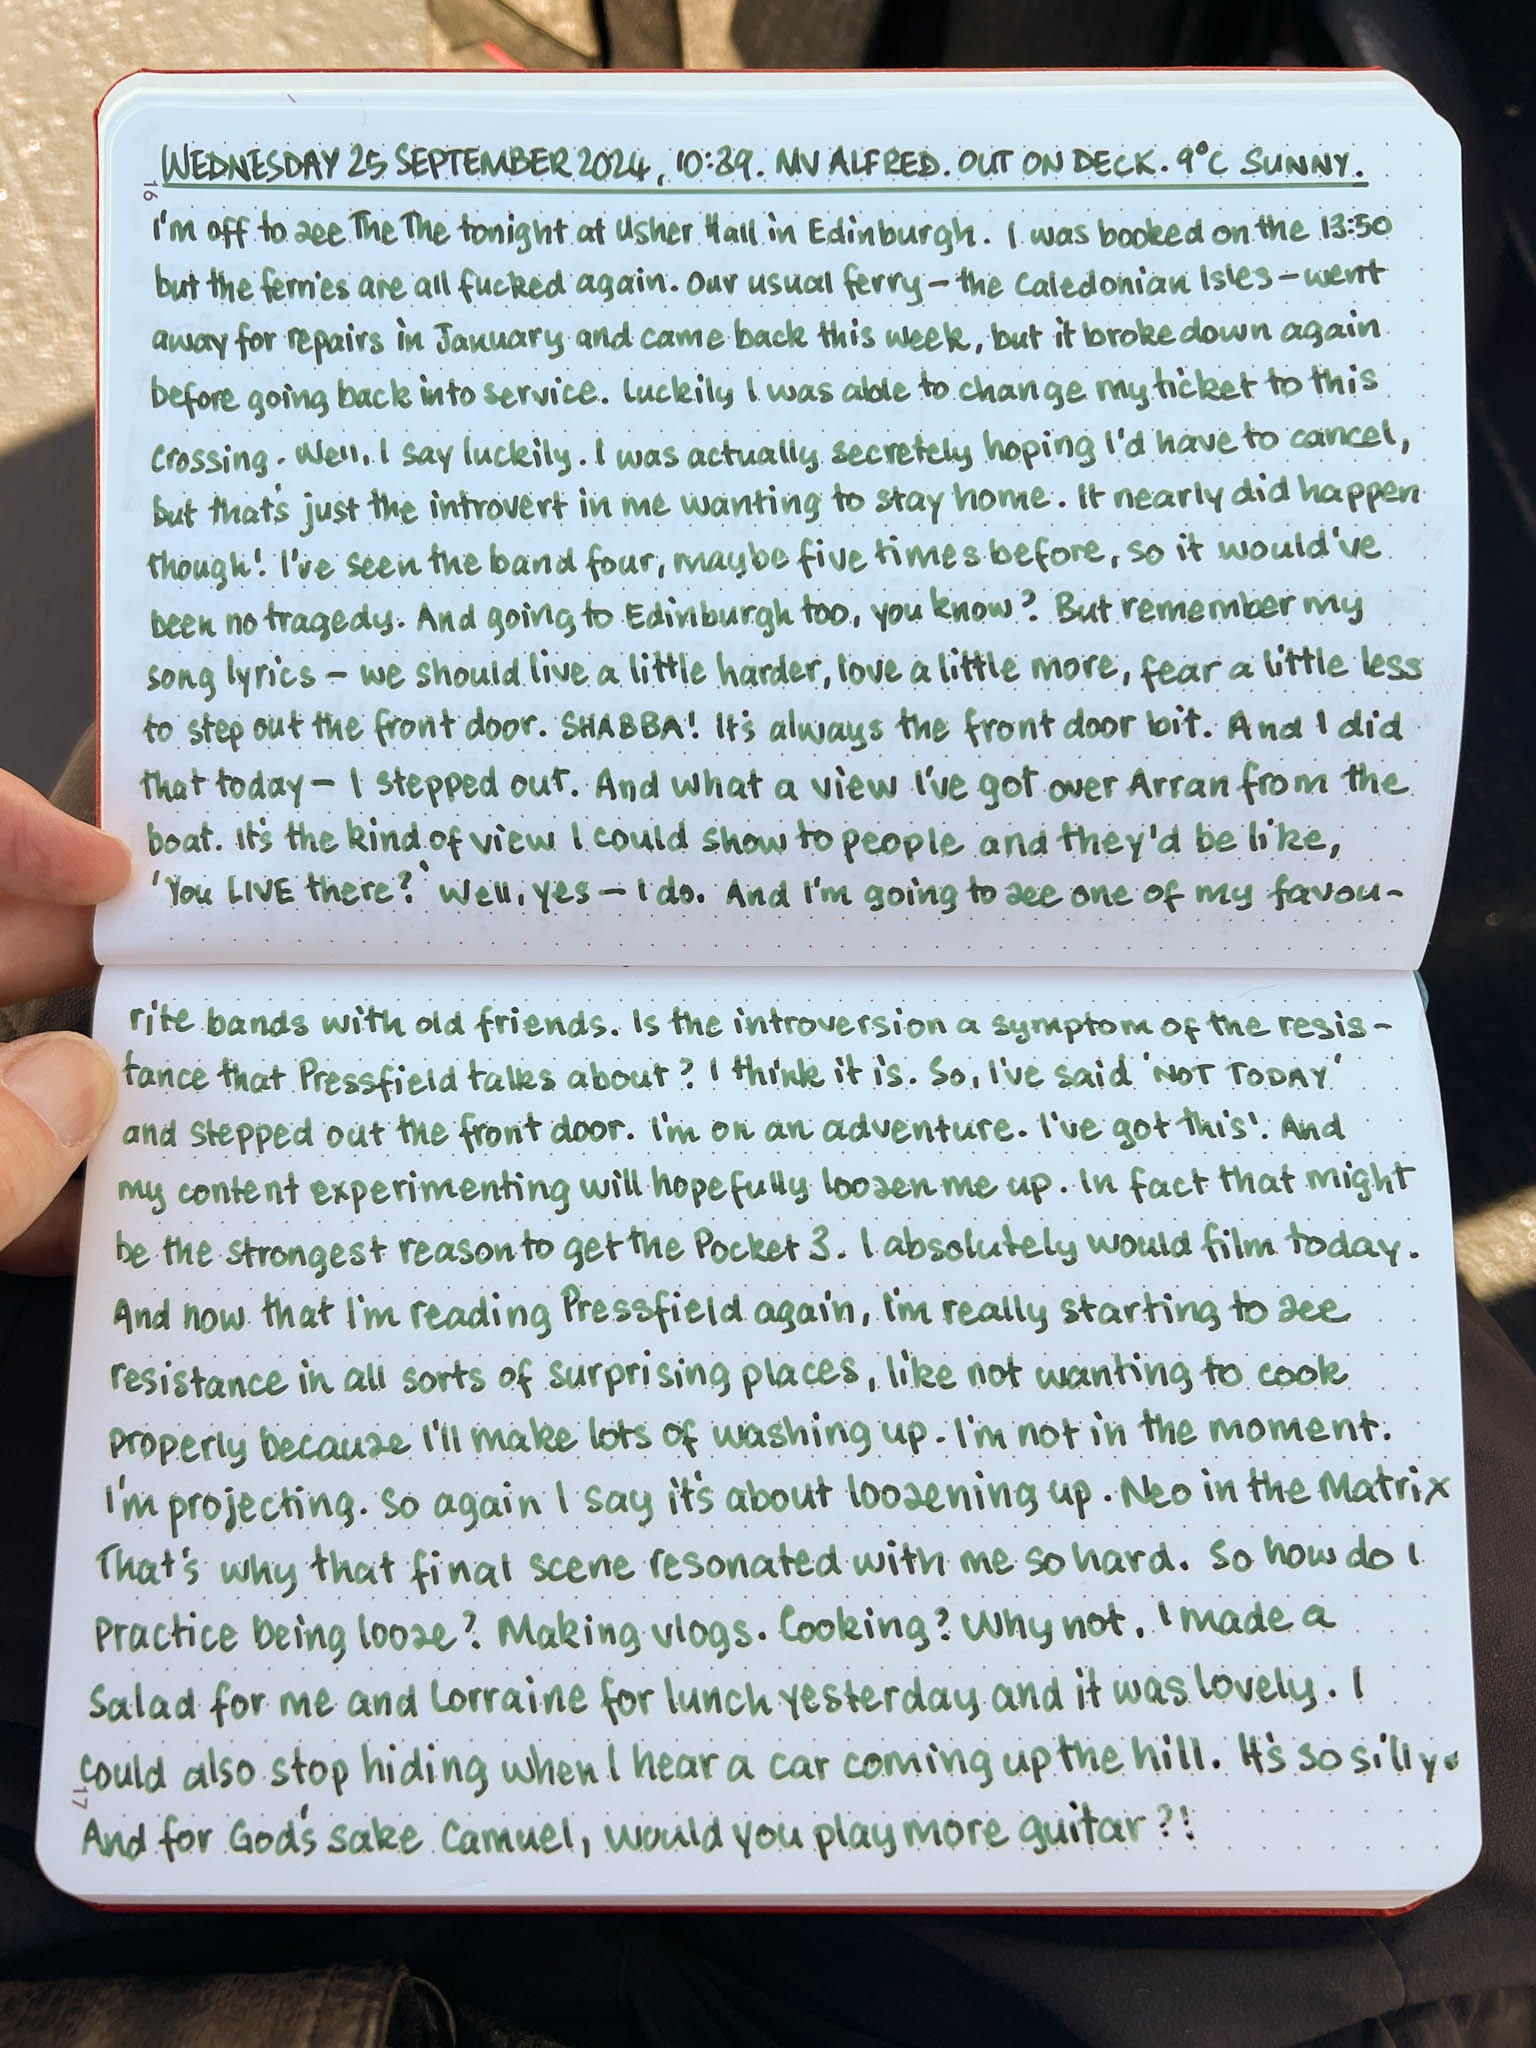 WEDNESDAY 25 SEPTEMBER 2024, 10:39. MV ALFRED. OUT ON DECK. 9°C SUNNY.
16
I'm off to see The The tonight at Usher Hall in Edinburgh. I was booked on the 13:50
but the ferries are all fucked again. Our usual ferry – the Caledonian Isles – went
away for repairs in January and came back this week, but it broke down again
before going back into service. Luckily I was able to change my ticket to this
crossing. Well, I say luckily. I was actually secretely hoping I'd have to cancel,
but that's just the introvert in me wanting to stay home. It nearly did happen
though! I've seen the band four, maybe five times before, so it would've
been no tragedy. And going to Edinburgh too, you know? But remember my
song lyrics – we should live a little harder, love a little more, fear a little less
to step out the front door. SHABBA! It's always the front door bit. And I did
that today – I stepped out. And what a view I've got over Arran from the
boat. It's the kind of view I could show to people and they'd be like,
'You LIVE there?' Well, yes – I do. And I'm going to see one of my favou-
rite bands with old friends. Is the introversion a symptom of the resis-
tance that Pressfield talks about? I think it is. So, I've said 'NOT TODAY'
and stepped out the front door. I'm on an adventure. I've got this! And
my content experimenting will hopefully loosen me up. In fact that might
be the strongest reason to get the Pocket 3. I absolutely would film today.
And now that I'm reading Pressfield again, I'm really starting to see
resistance in all sorts of surprising places, like not wanting to cook
properly because I'll make lots of washing up. I'm not in the moment.
I'm projecting. So again I say it's about loosening up. Neo in the Matrix
That's why that final scene resonated with me so hard. So how do I
practice being loose? Making vlogs. Cooking? Why not. I made a
salad for me and Lorraine for lunch yesterday and it was lovely. I
could also stop hiding when I hear a car coming up the hill. It's so silly.
17
And for God's sake Camuel, would you play more guitar?!